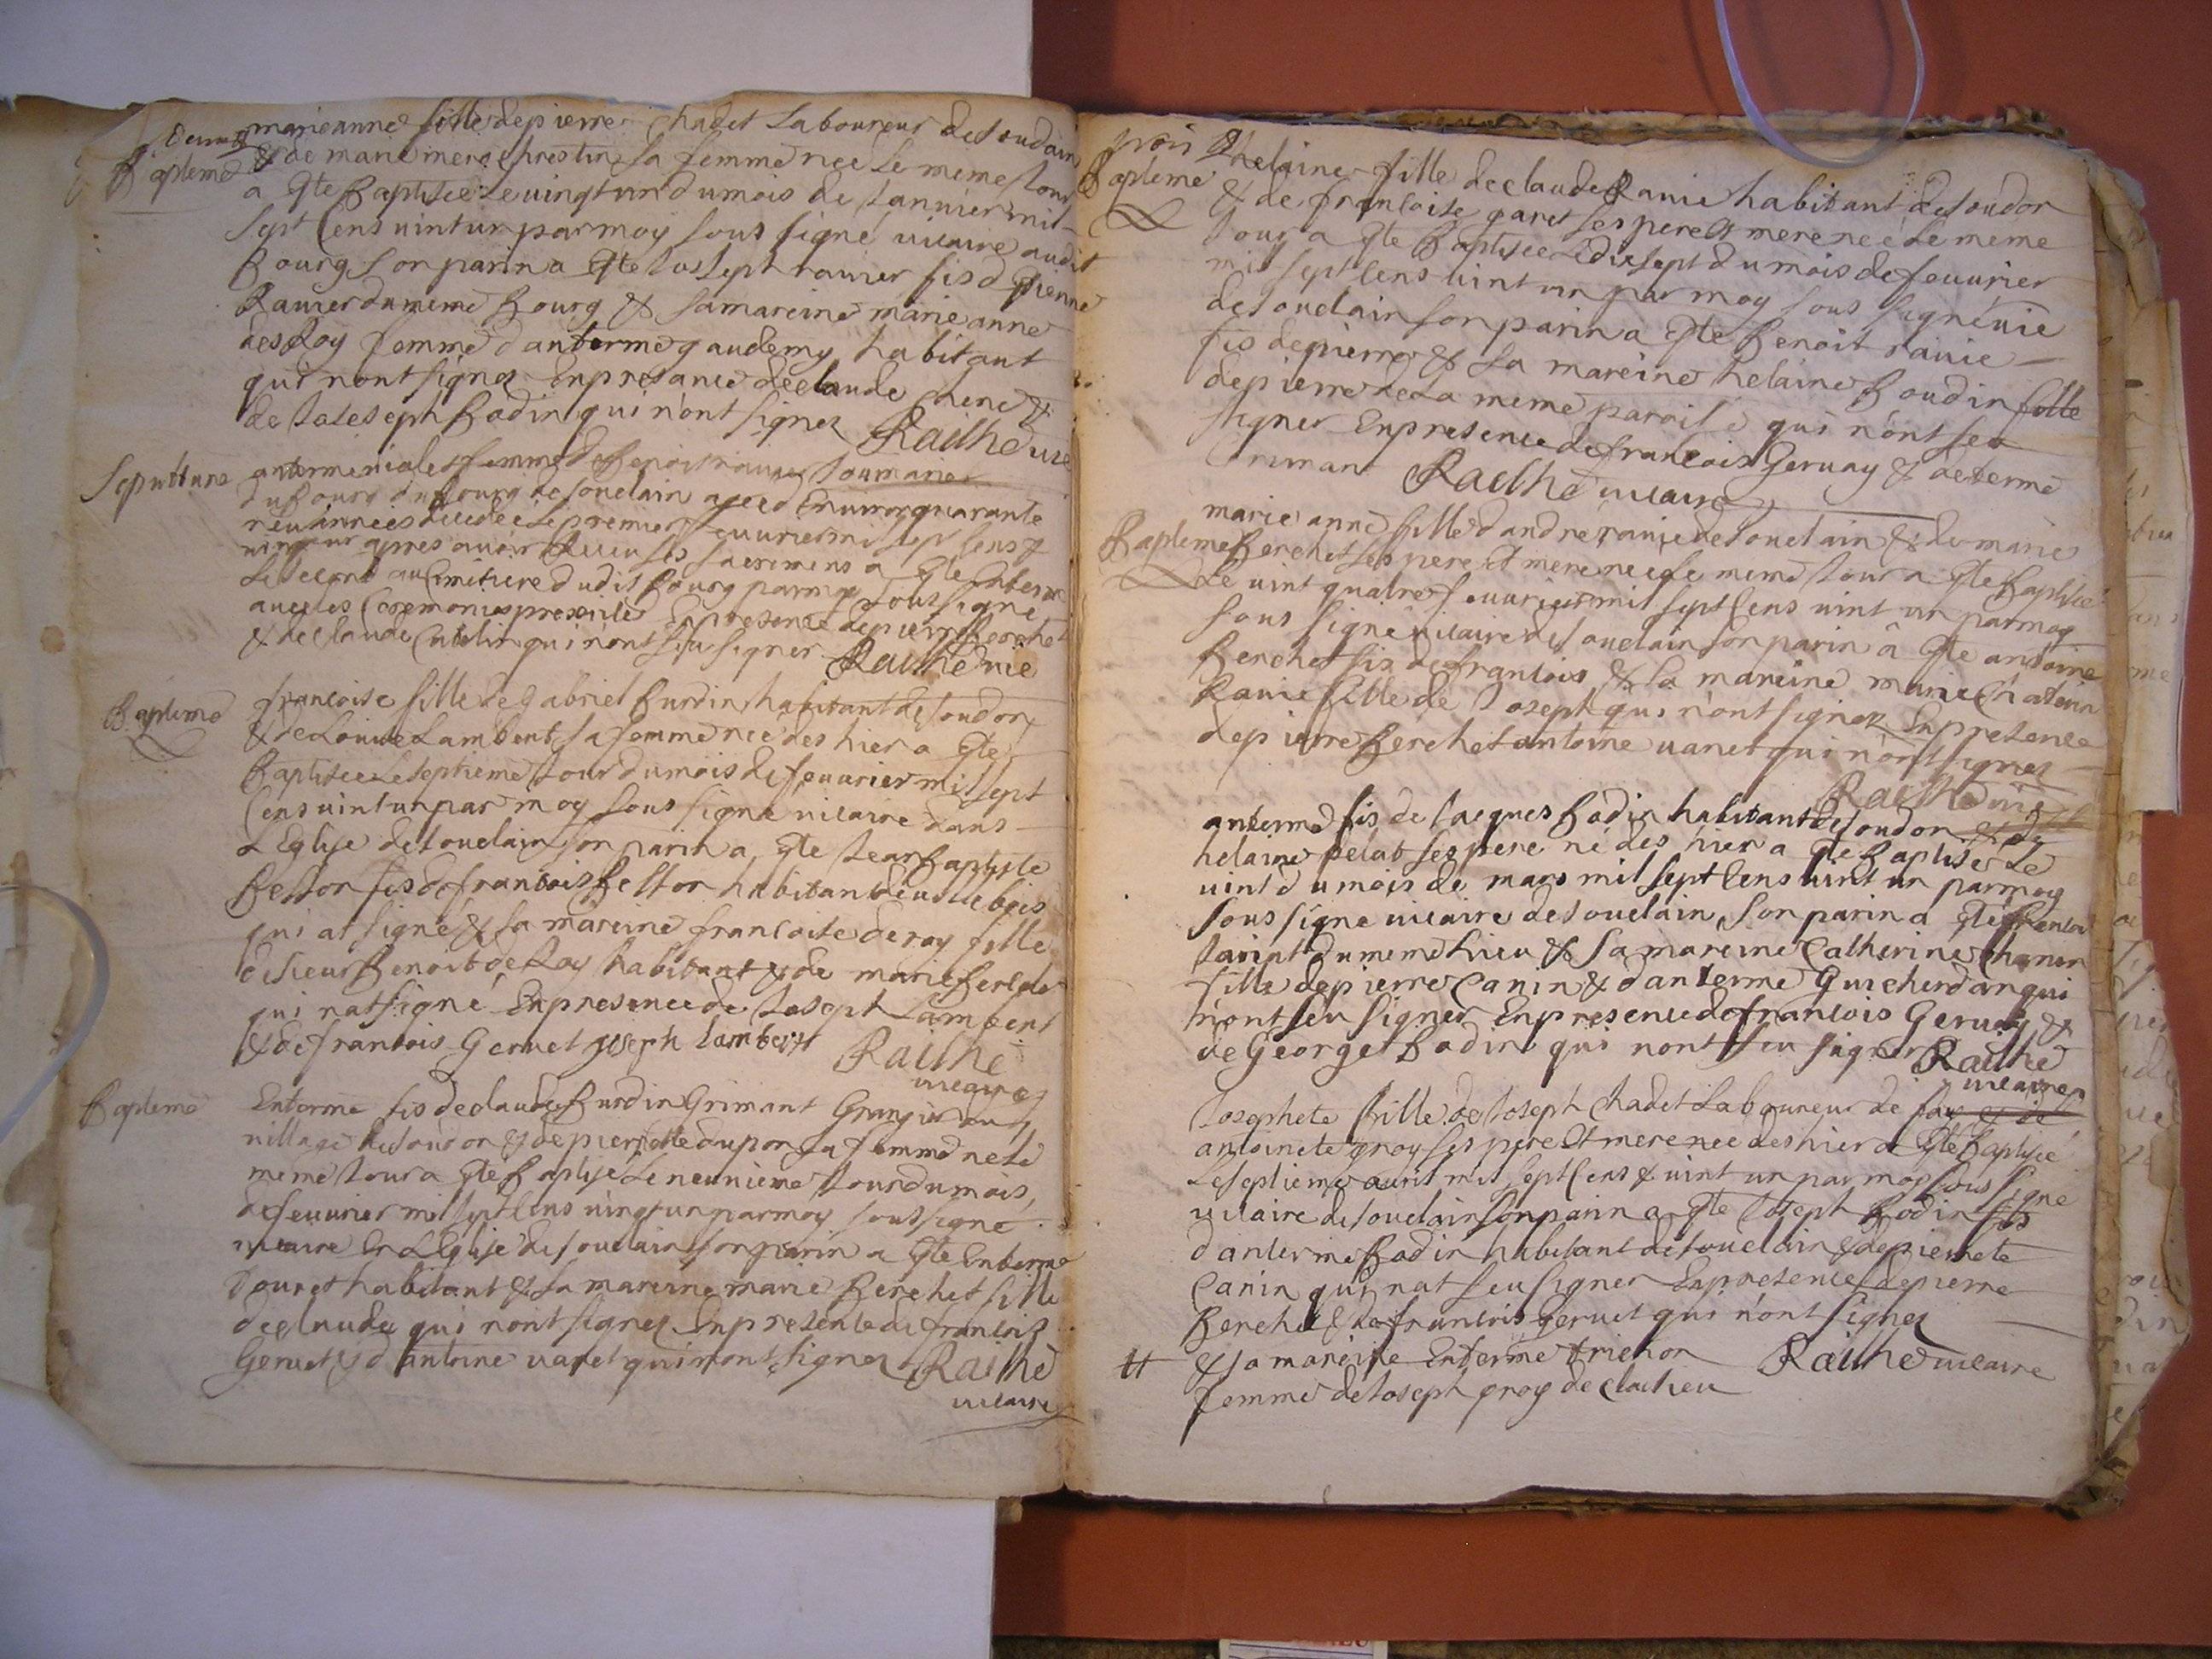 deux
Bapteme
marieanne fille de pierre Chadet Laboureur de soudain
& de marie mere chrestin sa femme nee Le meme Jour
a Ete Baptisee Le vingt un du mois de Janvier mil
sept Cens vint un par moy sous signe vicaire audit
Bourg son parin a Ete Joseph ravier fis d Etienne
Ravier du meme Bourg & sa mareine marie anne
des Roy femme d anterme gaudemy habitant
qui nont signez En presance de claude Chene &
de Joseseph Bodin qui n'ont signez Railhe vic
Sepulture
femme de Benoit ravier
du Bourg du Bourg de soudain agee d Environ quarante
neuf annees decedee Le premier feuvrier mil sept Cens &
vingt un apres avoir Receu ses sacremens a Ete Enterre
Le second au Cimitiere dudit Bourg par moy sous signe
avec les Ceremonies prescrites En presence de pierre Berchet
& de claude Catelin qui n'ont seu signer Railhe vic
Bapteme
francoise fille de gabriel Burdin habitant de soudon
& de Louise Lambent sa femme nee des hier a Ete
Baptisee Le septieme Jour du mois de feuvrier mil sept
Cens vint un par moy sous signe vicaire dans
L Eglise de soudain son parin a Ete Jean Baptiste
Bellon fis de francois Bellon habitant
qui at signe & sa mareine francoise de roy fille
de sieur Benoit de Roy habitant & de marie
qui nat signé En presence de Joseph Lambent
& de francois Geruet Joseph lambert Railhe
vicaire
Bapteme
Enterme fis de claude Burdin Grimant Grangier au
village de soudon & de pierrotte dupon sa femme ne le
meme Jour a Ete Baptise Le neuvieme Jour du mois
de feuvrier mil sept Cens vingt un par moy sous signe
vicaire En L Eglise de soudain son parin a Ete Enterme
Douret habitant & sa mareine marie Berchet fille
de claude qui nont signez En presence de francois
Geruet & d antoine varet qui nont signez Railhe
vicaire
trois
Bapteme
helaine fille de claude Ravie habitant de soudon
& de francoise garet ses pere & mere nee Le meme
Jour a Ete Baptisee Le dix sept du mois de feuvrier
mil sept Cens vint un par moy sous signé vic
de soudain son parin a Ete Benoit ravie
fis de pierre & sa mareine helaine Boudin fille
de pierre de La meme paroisse qui n'ont seu
signer En presence de francois Geruay & de
Grimant Railhe vicaire
Bapteme
marie anne fille d andre ravie de soudain & de marie
Berchet ses pere & mere nee Le meme Jour a Ete Baptisée
Le vint quatre feuvrier mil sept Cens vint un par moy
sous signé vicaire de soudain son parin â Ete antoine
Berchet fis de francois & sa mareine marie
Ravie fille de Joseph qui n'ont signez En presence
de pierre Berchet antoine varet qui n'ont signez
Railhe vic
anterme fis de Jacques Bodin habitant de soudon & de
helaine pelat ses pere né des hier a Ete Baptisé Le
vint du mois de mars mil sept Cens vint un par moy
sous signe vicaire de soudain son parin a Ete francois
du meme Lieu & sa mareine Catherine
fille de pierre Canin & d anterme Guicherdan qui
n'ont seu signer En presence de francois Geruay &
de George Bodin qui nont seu signer Railhe
vicaire
Josephete fille de Joseph Chadet Laboureur de
antoinete groy ses pere & mere nee des hier a Ete Baptisé
Le septieme avril mil sept Cens & vint un par moy sous signe
vicaire de soudain son parin a Ete Joseph Bodin fis
d anterme Bodin habitant de soudain & de pierrete
Canin qui nat seu signer En presence de pierre
Berchet & de francois Geruet qui n'ont signez
# & sa mareine Enterme trichon Railhe vicaire
femme de Joseph groy de